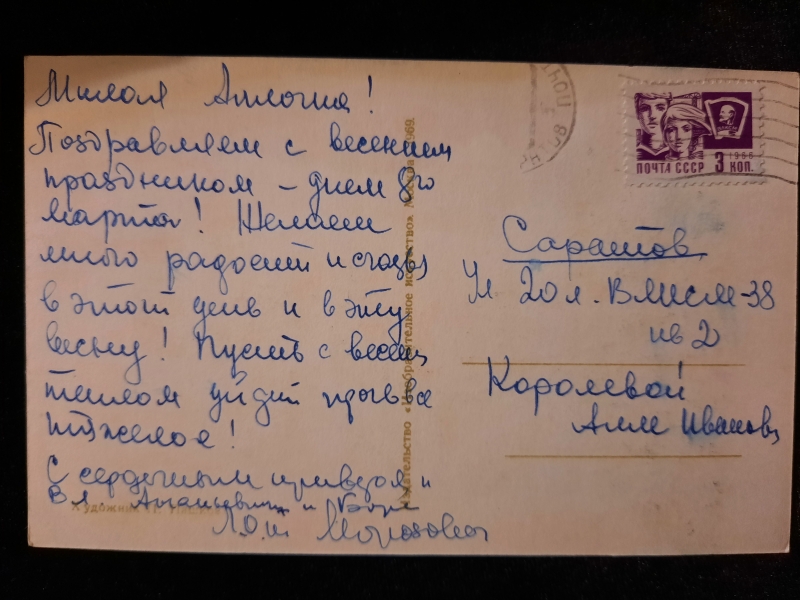 Милая Аллочка!
Поздравляем с весенним
праздником – днем 8го
марта! Желаем
много радости и счастья
в этот день и в эту
весну! Пусть с весен.
теплом уйдет прочь все
тяжелое!
С сердечным приветом и
Вл. и Боря
Морозовы
Саратов
Ул 20 л. ВЛКСМ-38
кв 2
Королевой
Алле Ивановн
ПОЧТА СССР 3 1966 КОП.
Издательство «Изобразительное искусство» Москва 1969
Художник